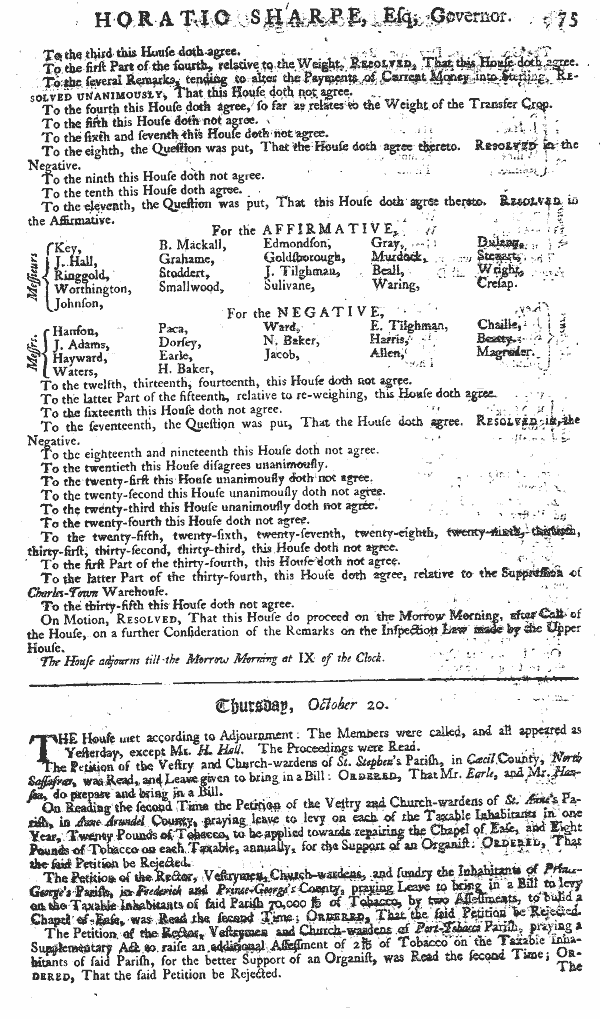 HORATIO SHARPE, Esq; Governor. 75
To the third this Houſe doth agree.
To the firſt Part of the fourth, relative to the Weight, RESOLVED, That this Houſe doth agree.
To the ſeveral Remarks, tending to alter the Payments of Current Money into Sterling, RE-
SOLVED UNANIMOUSLY, That this Houſe doth not agree.
To the fourth this Houſe doth agree, ſo far as relates to the Weight of the Transfer Crop.
To the fifth this Houſe doth not agree.
To the ſixth and ſeventh this Houſe doth not agree.
To the eighth, the Queſtion was put, That the Houſe doth agree thereto. RESOLVED in the
Negative.
To the ninth this Houſe doth not agree.
To the tenth this Houſe doth agree.
To the eleventh, the Queſtion was put, That this Houſe doth agree thereto. RESOLVED in
the Affirmative.
For the AFFIRMATIVE,
Meſſieurs
Key, B. Mackall, Edmondſon, Gray, Dulany,
J. Hall, Grahame, Goldſborough, Murdock, Stewart,
Ringgold, Stoddert, J. Tilghman, Beall, Wright,
Worthington, Smallwood, Sulivane, Waring, Creſap.
Johnſon,
For the NEGATIVE,
Meſſrs.
Hanſon, Paca, Ward, E. Tilghman, Chaille,
J. Adams, Dorſey, N. Baker, Harris, Beatty,
Hayward, Earle, Jacob, Allen, Magruder.
Waters, H. Baker,
To the twelfth, thirteenth, fourteenth, this Houſe doth not agree.
To the latter Part of the fifteenth, relative to re-weighing, this Houſe doth agree.
To the ſixteenth this Houſe doth not agree.
To the ſeventeenth, the Queſtion was put, That the Houſe doth agree. RESOLVED in the
Negative.
To the eighteenth and nineteenth this Houſe doth not agree.
To the twentieth this Houſe diſagrees unanimouſly.
To the twenty-firſt this Houſe unanimouſly doth not agree.
To the twenty-ſecond this Houſe unanimouſly doth not agree.
To the twenty-third this Houſe unanimouſly doth not agree.
To the twenty-fourth this Houſe doth not agree.
To the twenty-fifth, twenty-ſixth, twenty-ſeventh, twenty-eighth, twenty-ninth, thirtieth,
thirty-firſt, thirty-ſecond, thirty-third, this Houſe doth not agree.
To the firſt Part of the thirty-fourth, this Houſe doth not agree.
To the latter Part of the thirty-fourth, this Houſe doth agree, relative to the Suppreſſion of
Charles-Town Warehouſe.
To the thirty-fifth this Houſe doth not agree.
On Motion, RESOLVED, That this Houſe do proceed on the Morrow Morning, after Call of
the Houſe, on a further Conſideration of the Remarks on the Inſpection Law made by the Upper
Houſe.
The Houſe adjourns till the Morrow Morning at IX of the Clock.
Thurſday, October 20.
THE Houſe met according to Adjournment: The Members were called, and all appeared as
Yeſterday, except Mr. H. Hall. The Proceedings were Read.
The Petition of the Veſtry and Church-wardens of St. Stephen's Pariſh, in Cæcil County, North
Saſſafras, was Read, and Leave given to bring in a Bill: ORDERED, That Mr. Earle, and Mr. Han-
ſon, do prepare and bring in a Bill.
On Reading the ſecond Time the Petition of the Veſtry and Church-wardens of St. Anne's Pa-
riſh, in Anne Arundel County, praying leave to levy on each of the Taxable Inhabitants in one
Year, Twenty Pounds of Tobacco, to be applied towards repairing the Chapel of Eaſe, and Eight
Pounds of Tobacco on each Taxable, annually, for the Support of an Organiſt: ORDERED, That
the ſaid Petition be Rejected.
The Petition of the Rector, Veſtrymen, Church-wardens, and ſundry the Inhabitants of Prince-
George's Pariſh, in Frederick and Prince-George's County, praying Leave to bring in a Bill to levy
on the Taxable Inhabitants of ſaid Pariſh 70,000 ℔ of Tobacco, by two Aſſeſſments, to build a
Chapel of Eaſe, was Read the ſecond Time; ORDERED, That the ſaid Petition be Rejected.
The Petition of the Rector, Veſtrymen and Church-wardens of Port-Tobacco Pariſh, praying a
Supplementary Act to raiſe an additional Aſſeſſment of 2 ℔ of Tobacco on the Taxable Inha-
bitants of ſaid Pariſh, for the better Support of an Organiſt, was Read the ſecond Time; OR-
DERED, That the ſaid Petition be Rejected.
The